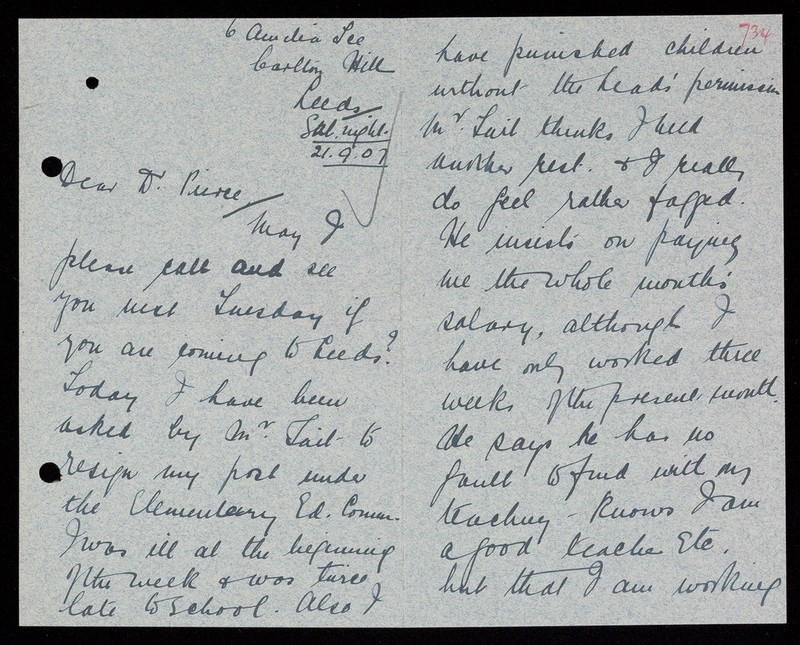 6 Amelia Tce
Carlton Hill
Leeds
Sat. night.
21.9.07
Dear Dr. Pierce,
May I
please call and see
you next Tuesday if
you are coming to Leeds?
Today I have been
asked by Mr. Tait to
resign my post under
the Elementary Ed. Comm.
I was ill at the beginning
of the week & was twice
late to school. Also I
734
have punished children
without the heads' permission
Mr. Tait thinks I need
another rest. & I really
do feel rather fagged.
He insists on paying
me the whole month's
salary, although I
have only worked three
weeks of the present month.
He says he has no
fault to find with my
teaching - knows I am
a good teacher Etc.
but that I am working